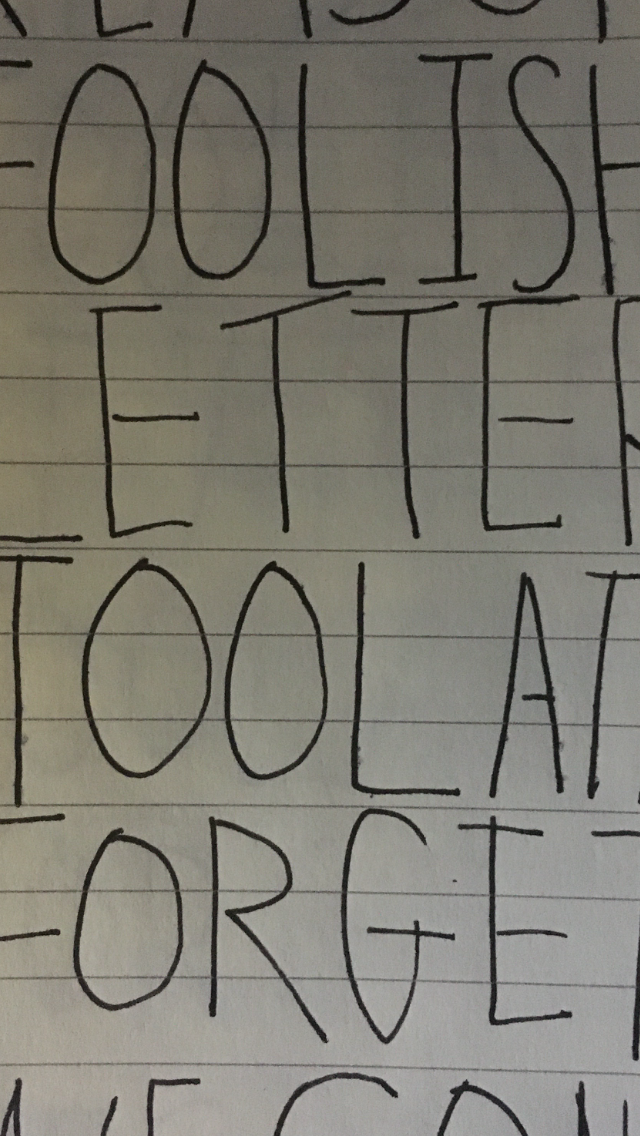 FOOLISH
LETTER
TOOLAT
FORGET